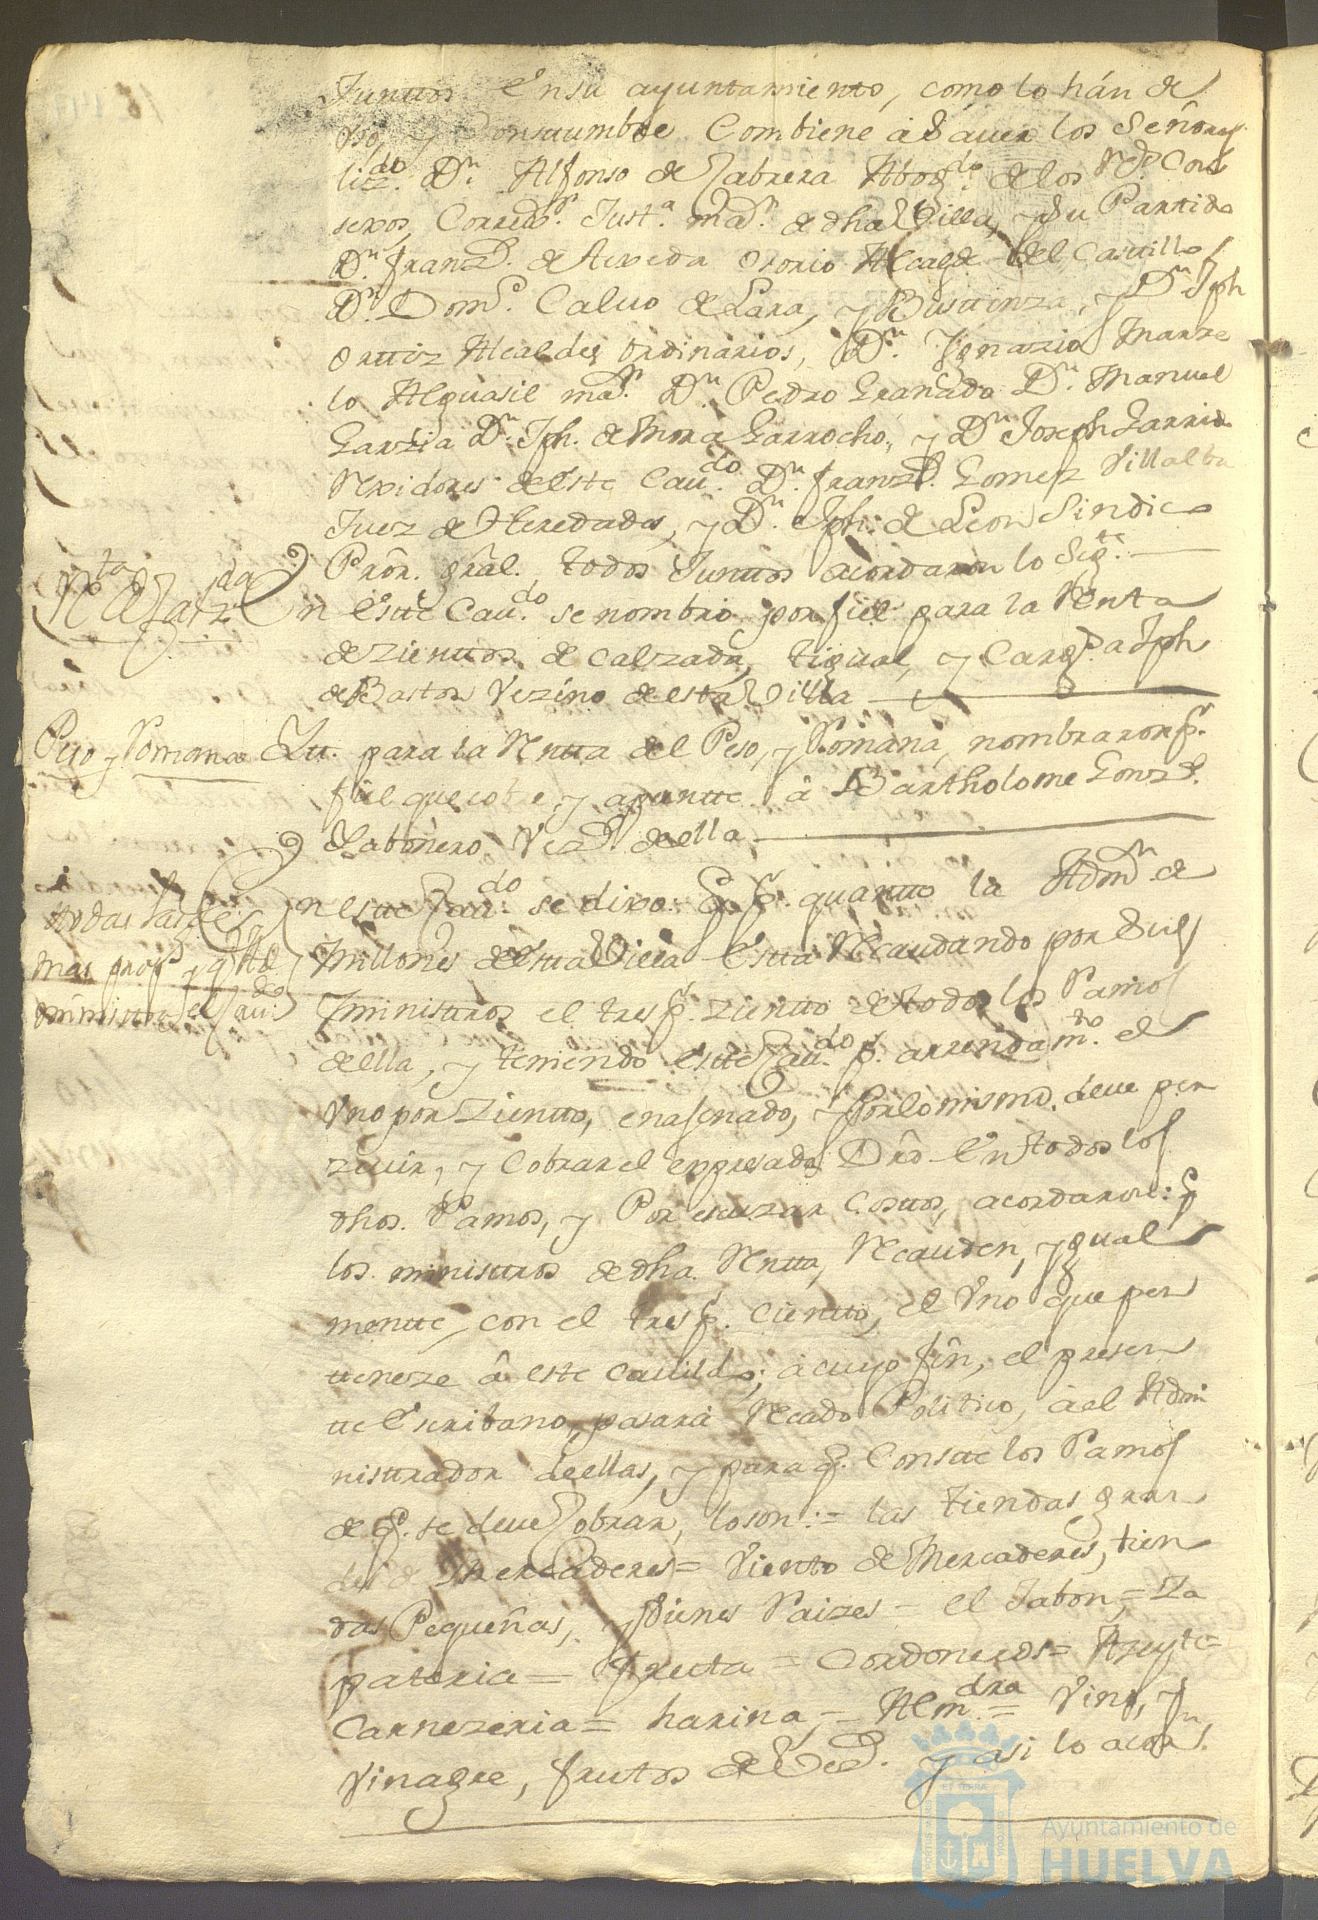 Junttos En su ayuntamiento, como lo hán de
Vso, y Consttumbre Combiene à Sauer los Señores
lizdo. Dn. Alfonso de Cabrera Abogdo. de los Rs. Con
sexos, Corregor. Justa. mar. de dha Villa, y Su Partido
Dn. Franzco. de Azeveda Osorio Alcayde del Casttillo
Dn. Domo. Calvo de Lara, y Busttinza, y Dn. Jph
Orttiz Alcaldes Ordinarios, Dn. Ygnazio Marze
lo Alguasil mar. Dn. Pedro Granado Dn. Manuel
Garzia Dn. Jph. de Mora Garrocho, y Dn. Joseph Garrido
Rexidores de este Caudo. Dn. Franzco. Gomez Villalba
Juez de Heredades, y Dn. Jph. de Leon Sindico
Prôr. grâl., todos Junttos acordaron lo Sigte.
Rta de Calzda En Estte Caudo. se nombró por fiel para la Rentta
de Zienttos de Calzada, tigual, y Cargo. a Jph
de Bastos Vezino de estta Villa
Peso y Romana Ytt. para la Rentta del Peso, y Romana, nombraron pr.
fiel que cobre y apuntte â Bartholome Gonzs.
Xabonero Vezo. de ella
En estte Caudo. se dixo: q. pr. quantto la Admn. de
Millones de estta Villa Estta Recaudando por Sus
Ministtros el tres pr. Zientto de todos los Ramos
de ella, y teniendo estte Caudo. pr. arrendamto. el
Vno por Zientto, enagenado, y Por lo mismo, deve per
zeuir, y Cobrar el expresado Drô En todos los
dhos. Ramos, y Por escuzar Costtos, acordaron: q
los ministtros de dha Rentta, Recauden, ygual
mentte, con el tres pr. Cientto, el Vno que per
tteneze â este Cauildo; à cuyo fîn, el presen
tte Escribano, pasarà Recado Politico, à el Admi
nisttrador de ellas, y para q. Constte los Ramos
de q. se deue Cobrar, lo son:= las tiendas gran
des de Mercaderes= Viento de Mercaderes, tien
das Pequeñas, y Bienes Raizes = el Jabon = Za
pateria = Fructa = Cordoneros = Azeyte=
Carnezeria = harina, = Almdra = Vino, y
Vinagre, frutos de y asi lo acorn.
Ayuntamiento de
HUELVA